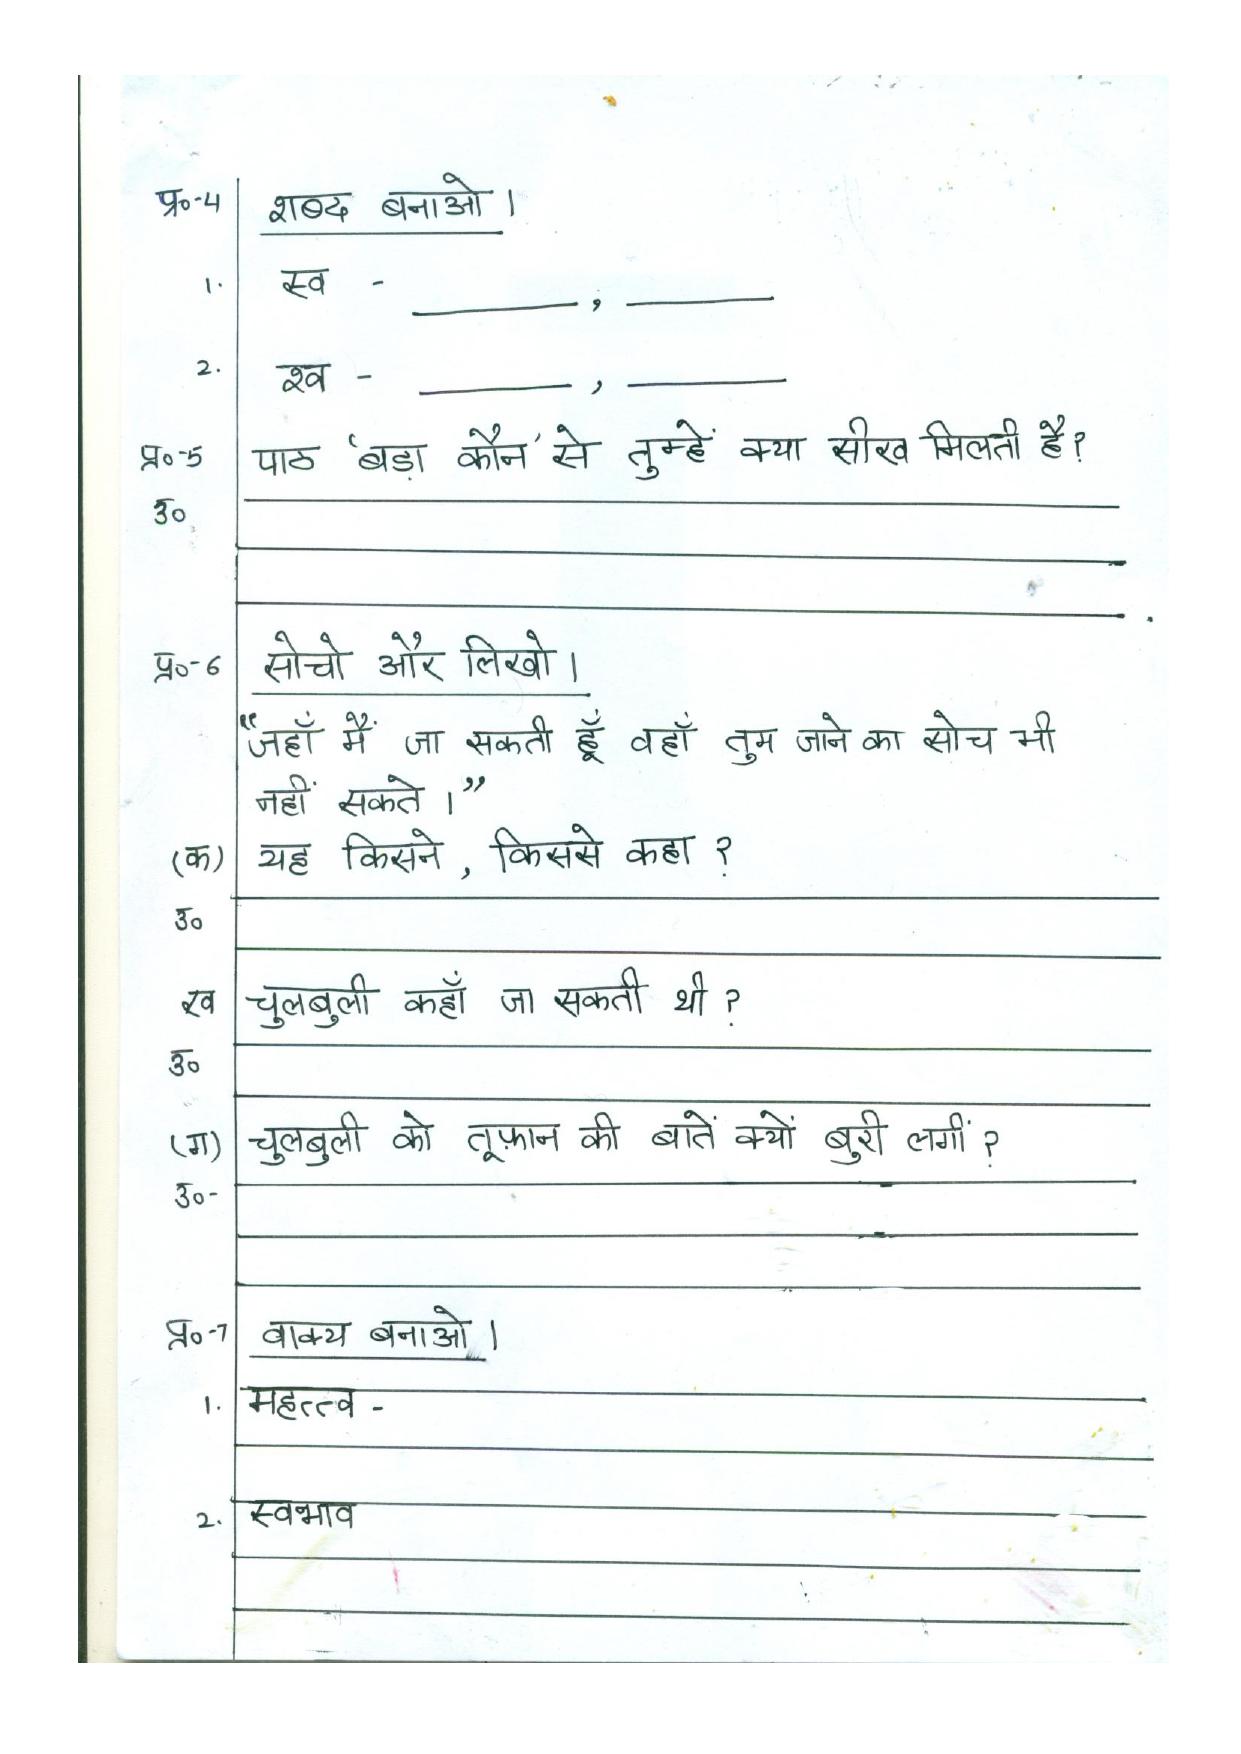 प्र०-4 शब्द बनाओ।
1. स्व - ________ , ________
2. श्व - ________ , ________
प्र०-5 पाठ 'बड़ा कौन' से तुम्हें क्या सीख मिलती है?
उ०
प्र०-6 सोचो और लिखो।
"जहाँ मैं जा सकती हूँ वहाँ तुम जाने का सोच भी
नहीं सकते।"
(क) यह किसने, किससे कहा?
उ०
ख चुलबुली कहाँ जा सकती थी?
उ०
(ग) चुलबुली को तूफ़ान की बातें क्यों बुरी लगीं?
उ०-
प्र०-7 वाक्य बनाओ।
1. महत्त्व -
2. स्वभाव